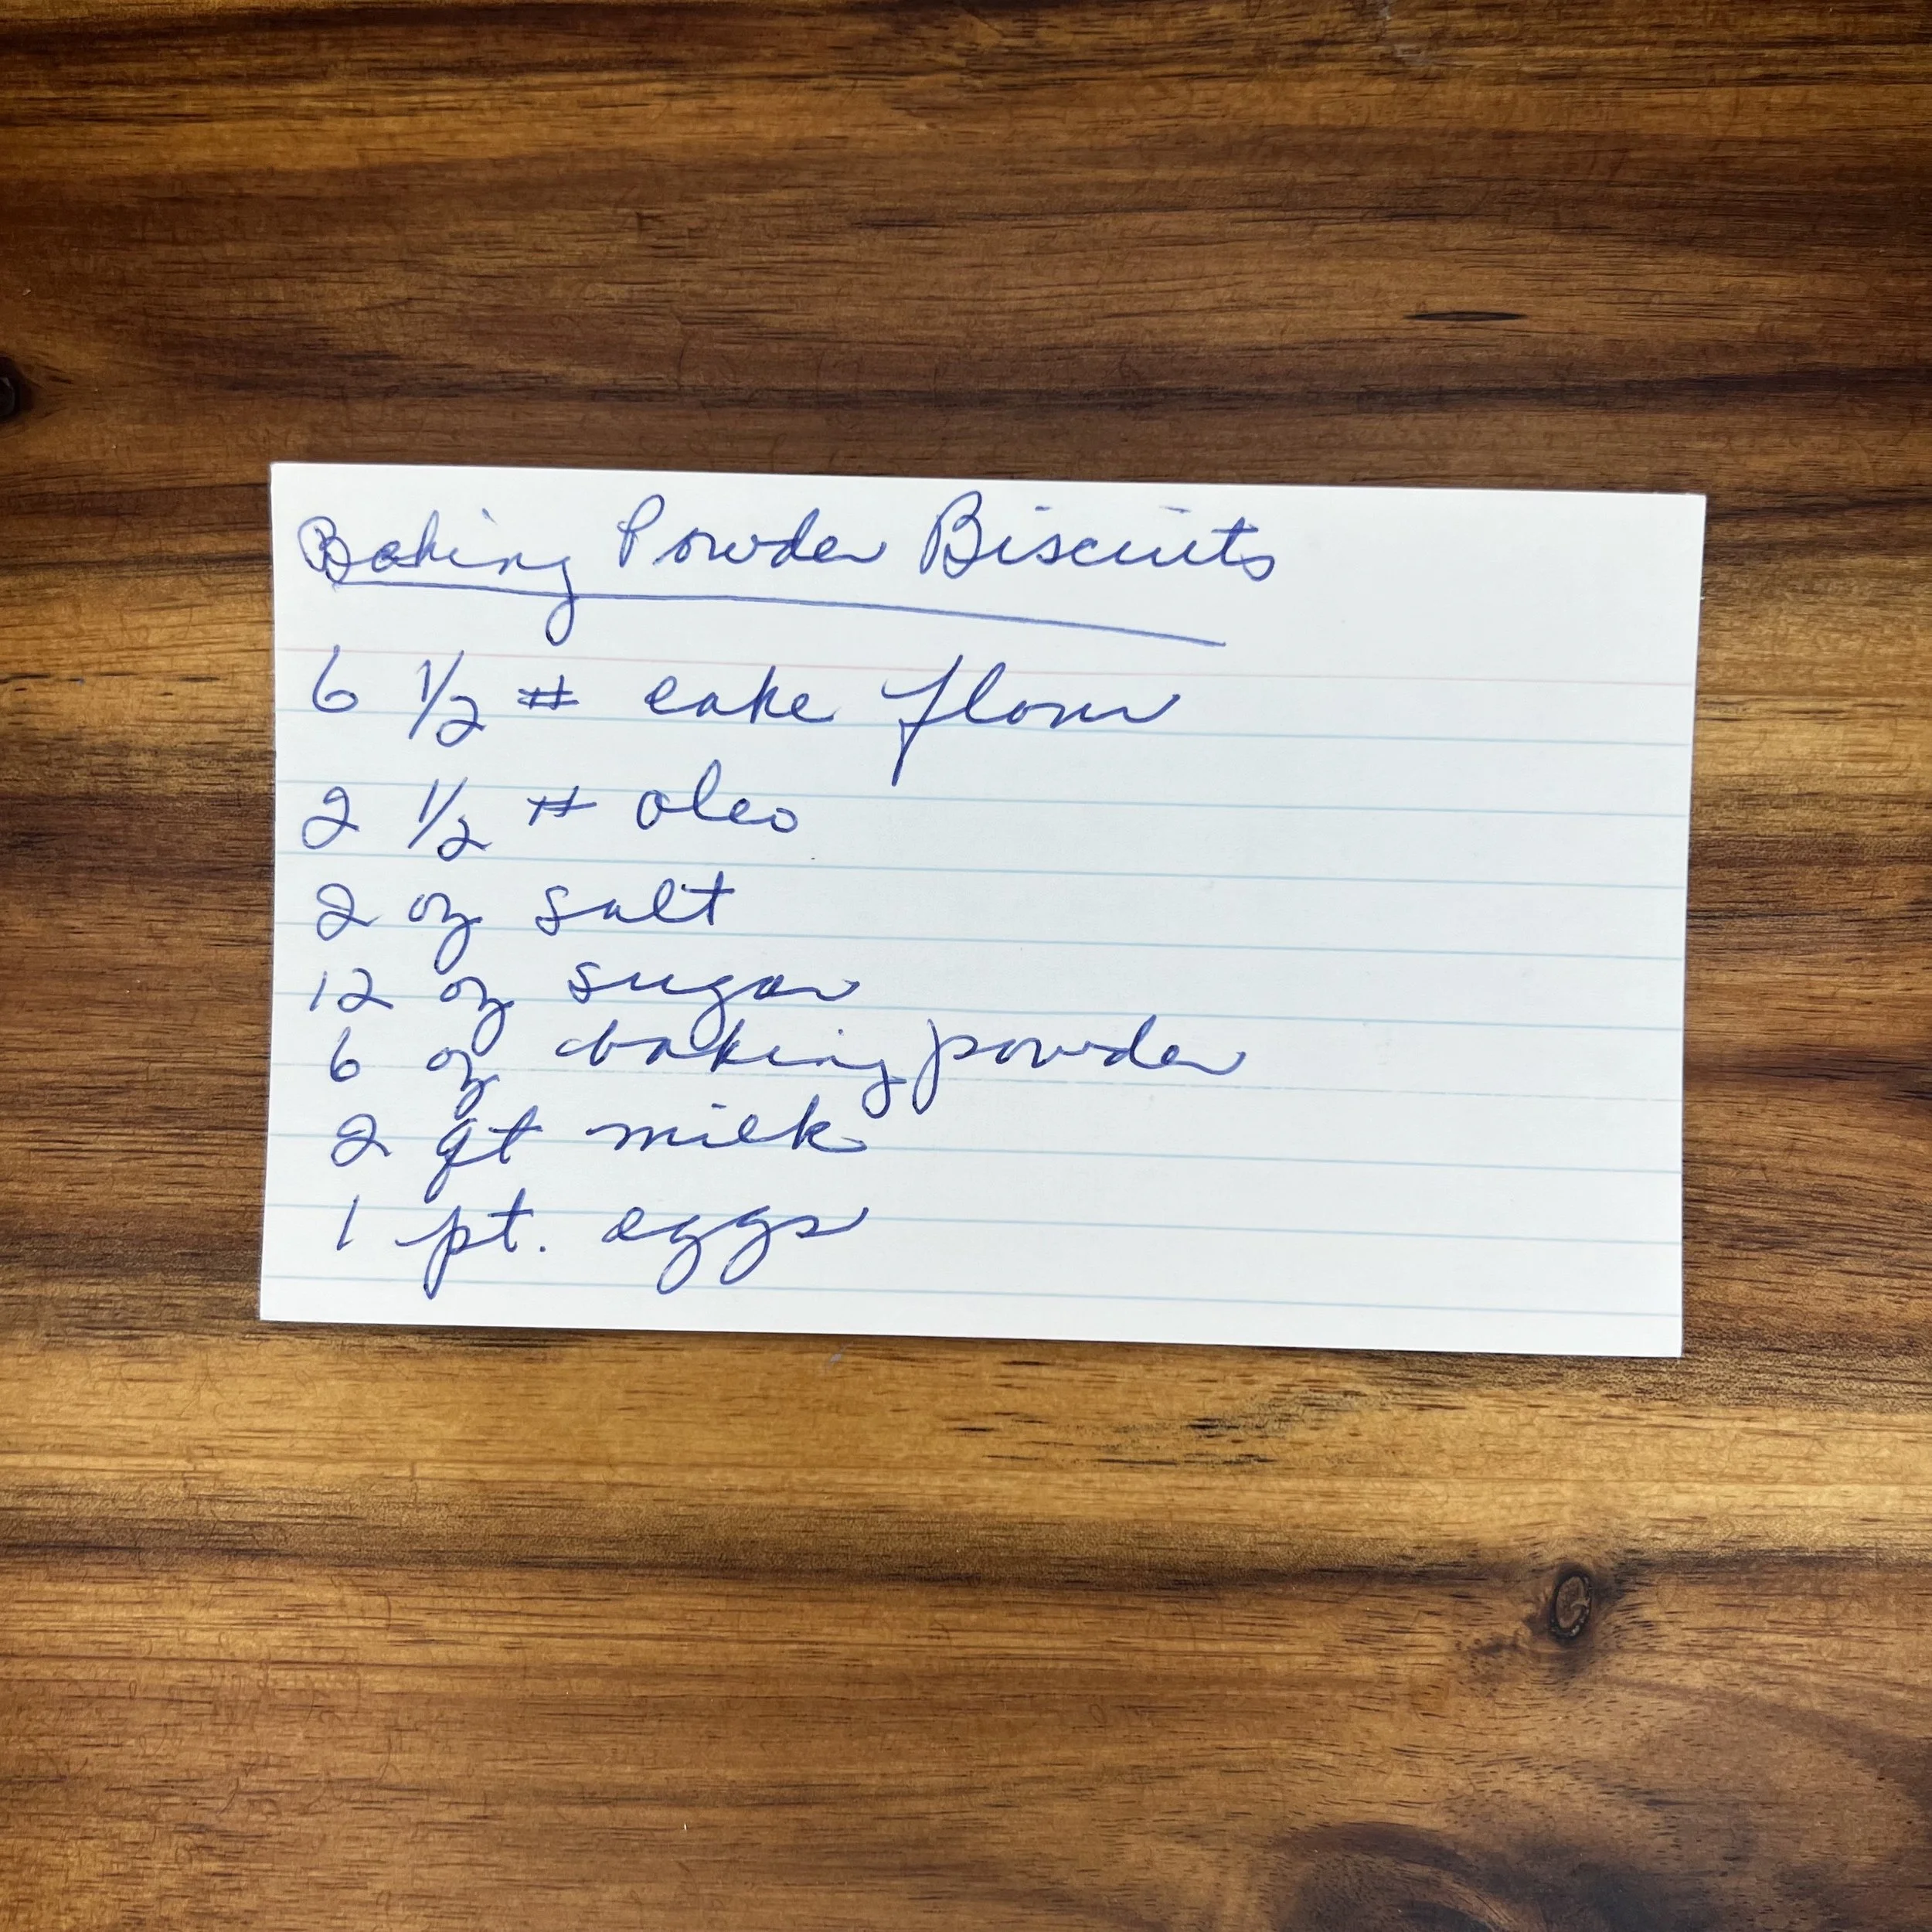 Baking Powder Biscuits
6 1/2 # cake flour
2 1/2 # oleo
2 oz salt
12 oz sugar
6 oz baking powder
2 qt milk
1 pt. eggs